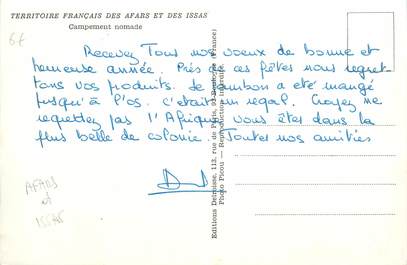 TERRITOIRE FRANÇAIS DES AFARS ET DES ISSAS
Campement nomade
6f
Recevez Tous nos voeux de bonne et
heureuse année. Près de ces fêtes nous regret-
tons vos produits. Le jambon a été mangé
jusqu'à l'os. c'était un régal. Croyez ne
regrettez pas l'Afrique vous êtes dans la
plus belle de colonie. Toutes nos amitiés
AFARS
et
ISSAS
Editions Delroisse, 113, rue de Paris, 92-Boulogne (France)
Photo Picou — Reproduction interdite